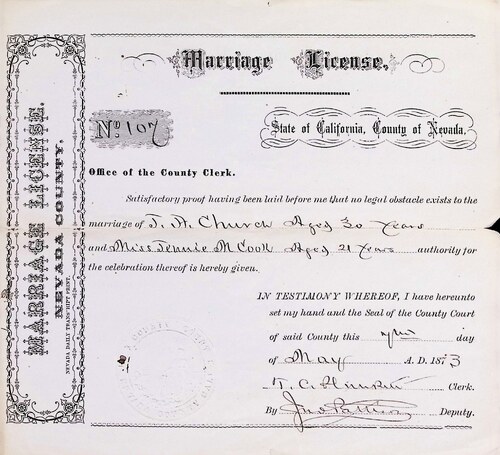 MARRIAGE LICENSE.
NEVADA COUNTY.
NEVADA DAILY TRANSCRIPT PRINT.
Marriage License.
No. 107
State of California, County of Nevada.
Office of the County Clerk.
Satisfactory proof having been laid before me that no legal obstacle exists to the
marriage of T. A. Church Aged 30 Years
and Miss Jennie M Cook Aged 21 Years authority for
the celebration thereof is hereby given.
IN TESTIMONY WHEREOF, I have hereunto
set my hand and the Seal of the County Court
of said County this day
of May A. D. 1873
T. C. Clerk.
By Jno Deputy.